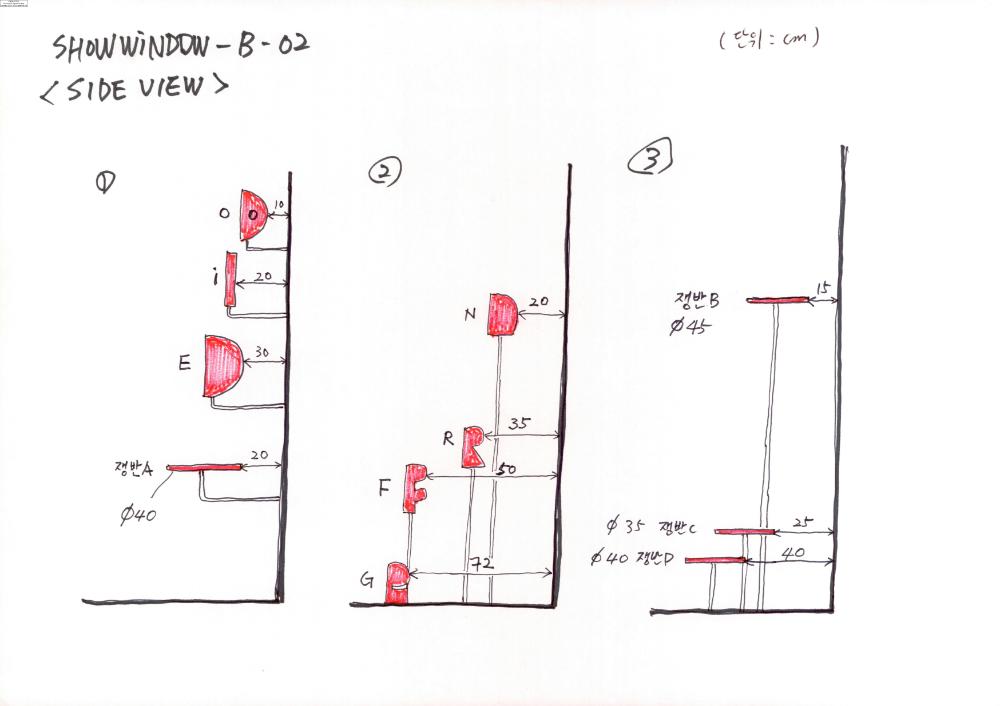 SHOWWINDOW-B-02
(단위 : cm)
<SIDE VIEW>
①
O
O
10
i
20
E
30
쟁반A
20
Ø40
②
N
20
R
35
F
50
G
72
③
쟁반B
15
Ø45
Ø35 쟁반C
25
Ø40 쟁반D
40